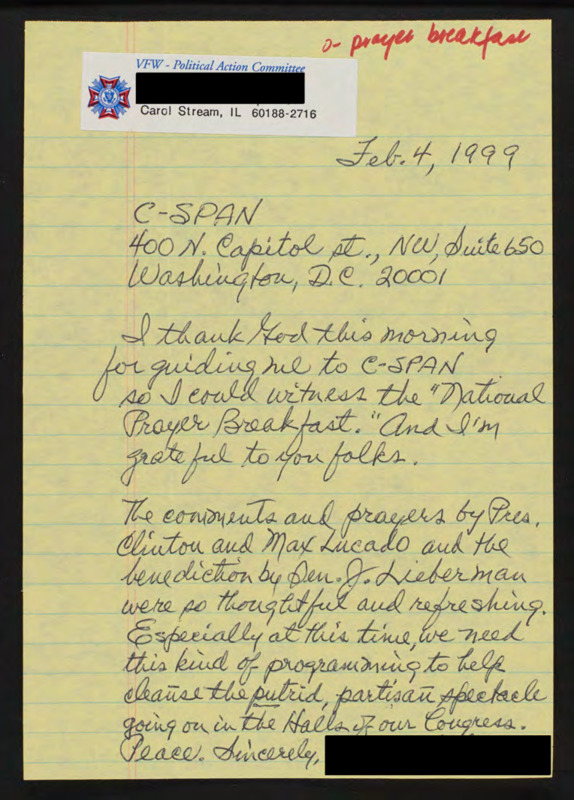 o- prayer breakfast
VFW - Political Action Committee
Carol Stream, IL 60188-2716
Feb. 4, 1999
C-SPAN
400 N. Capitol st., NW, Suite 650
Washington, D.C. 20001
I thank God this morning
for guiding me to C-SPAN
so I could witness the "National
Prayer Breakfast." And I'm
grateful to you folks.
The comments and prayers by Pres.
Clinton and Max Lucado and the
benediction by Sen. J. Lieberman
were so thoughtful and refreshing.
Especially at this time, we need
this kind of programming to help
cleanse the putrid, partisan spectacle
going on in the Halls of our Congress.
Peace. Sincerely,